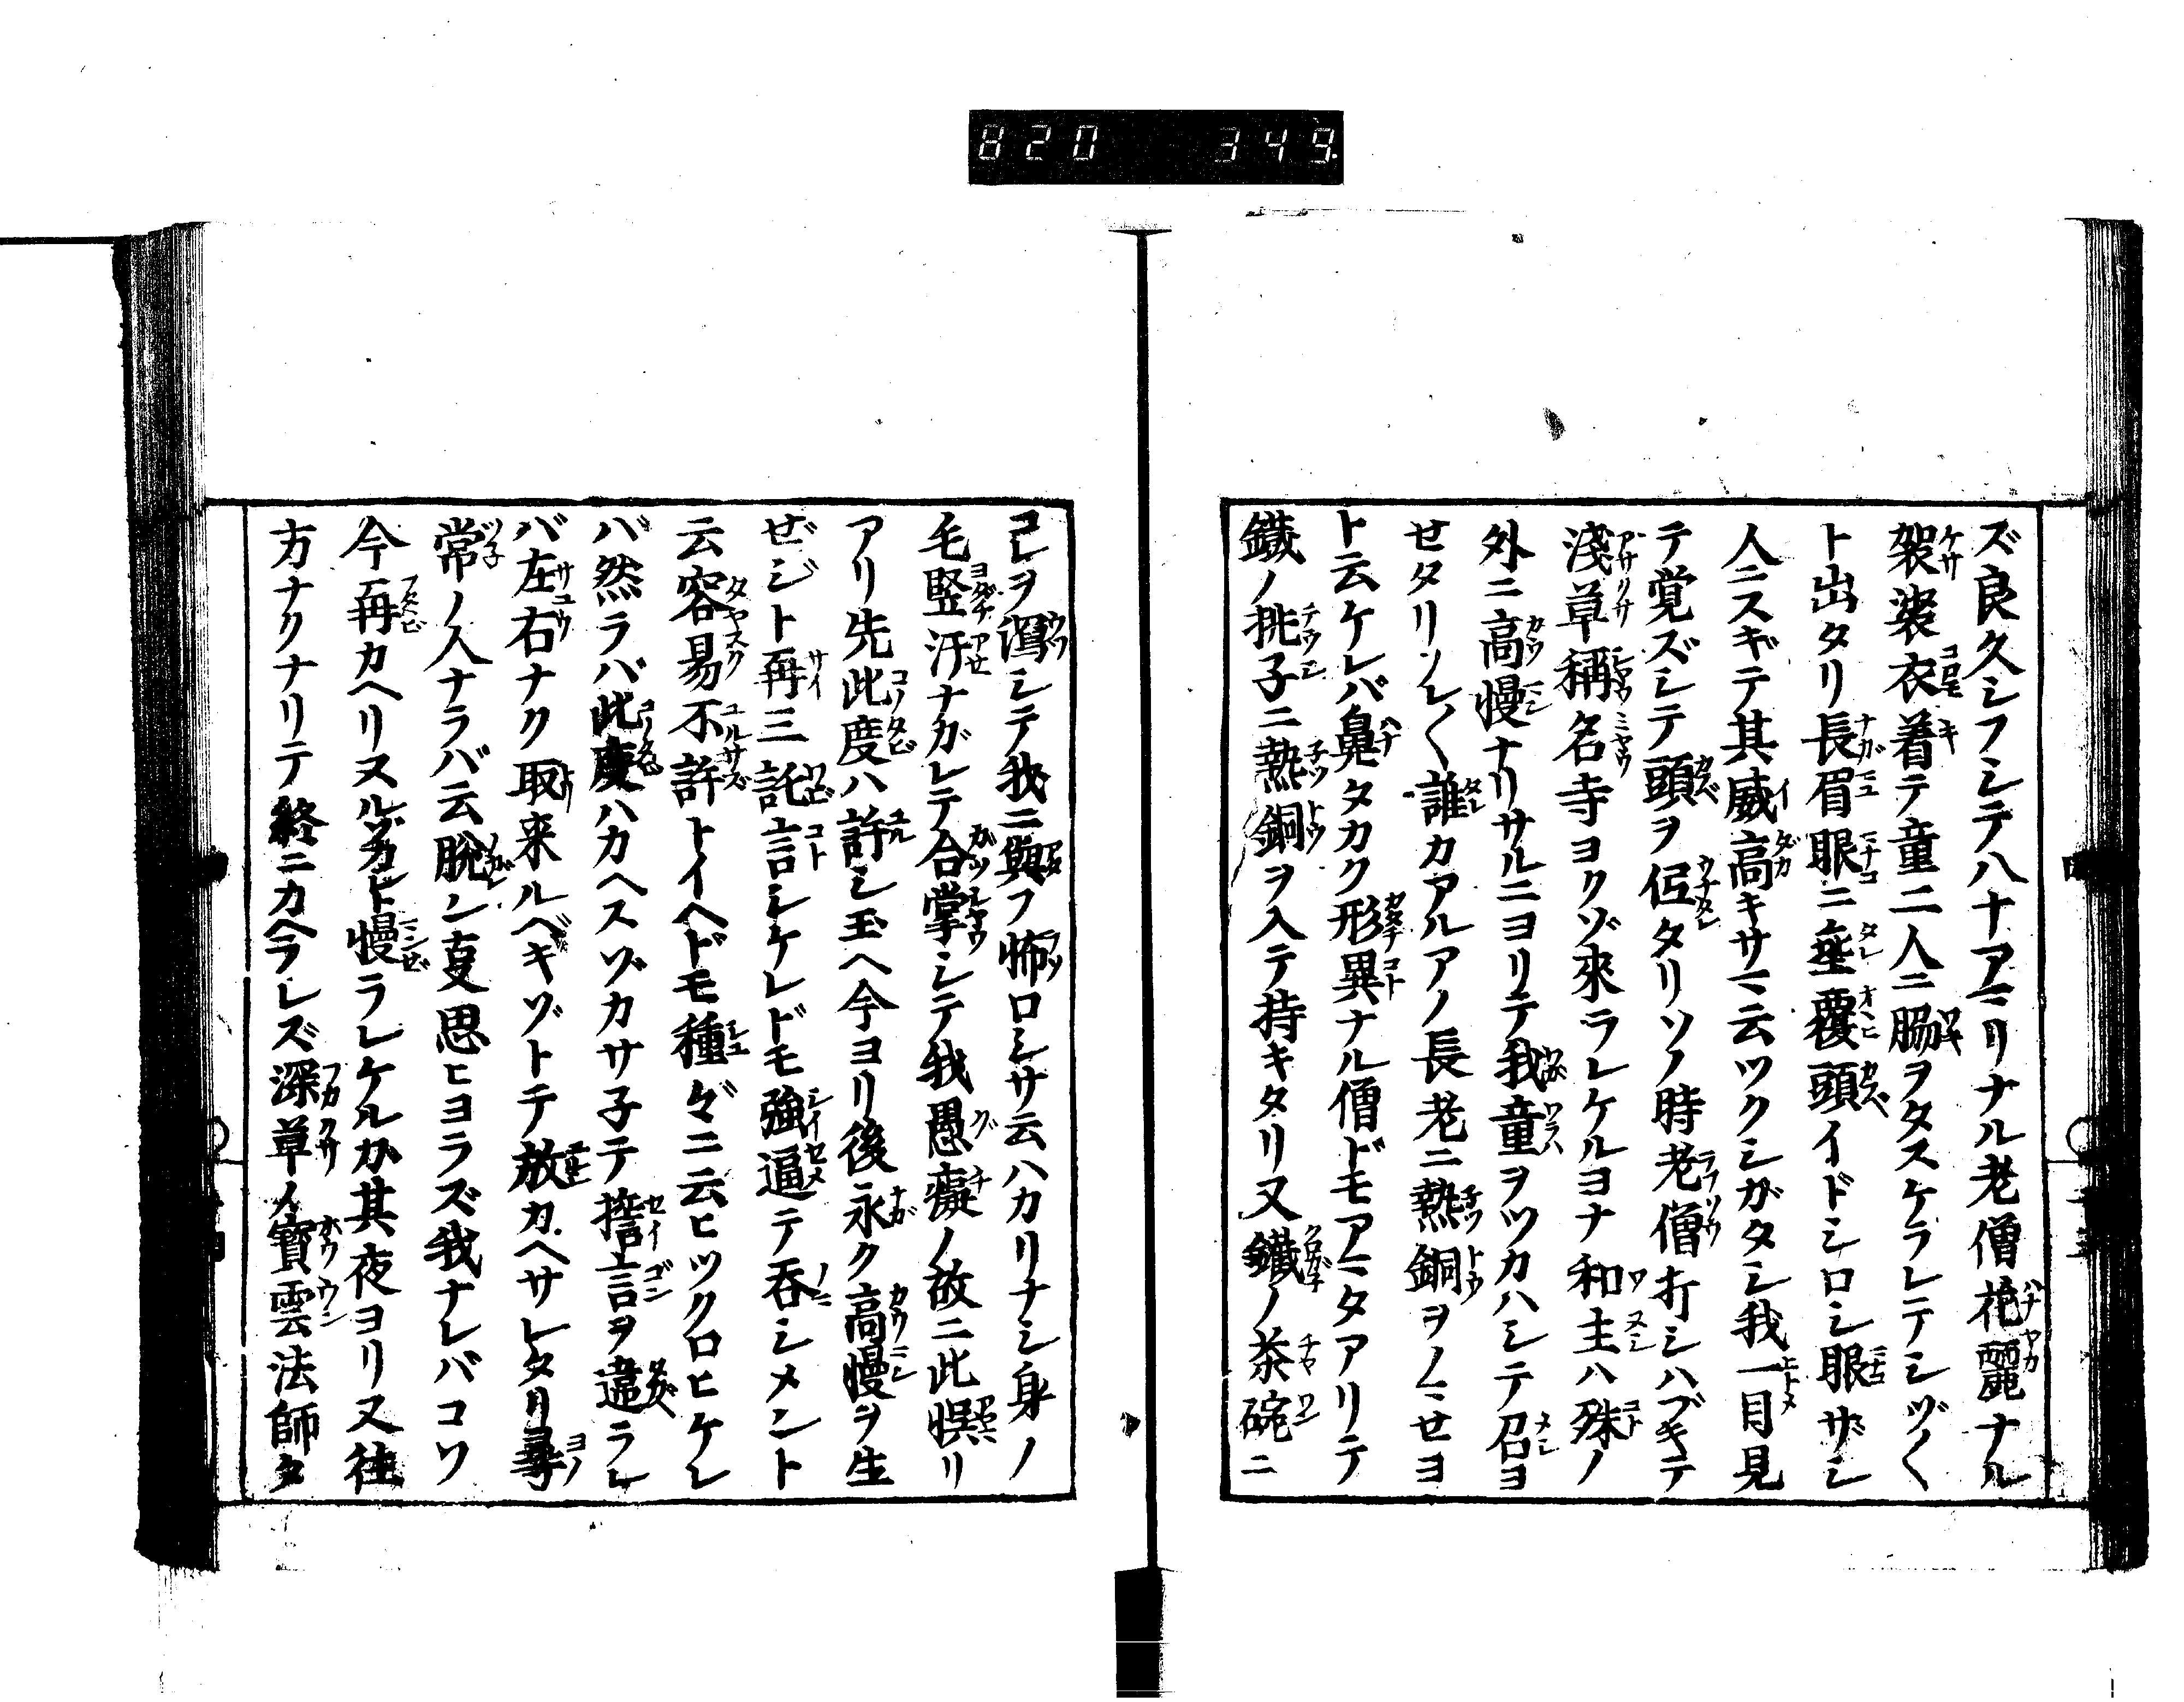 820 349
ズ良久シフシテハ十アマリナル老僧花麗ナル
袈裟衣着テ童二人ニ脇ヲタスケラレテシヅ〱
ト出タリ長眉眼ニ埀覆頭イドシロシ眼ザシ
人ニスギテ其威高キサマ云ツクシガタシ我一目見
テ覚ズシテ頭ヲ低タリソノ時老僧打シハブキテ
淺草稱名寺ヨクゾ來ラレケルヨナ和主ハ殊ノ
外ニ高慢ナリサルニヨリテ我童ヲツカハシテ召ヨ
セタリソレ〱誰カアルアノ長老ニ熱銅ヲノマセヨ
ト云ケレバ鼻タカク形異ナル僧ドモアマタアリテ
鐵ノ挑子ニ熱銅ヲ入テ持キタリ又鐵ノ茶碗ニ
コレヲ瀉シテ我ニ與フ怖ロシサ云ハカリナシ身ノ
毛竪汗ナガレテ合掌シテ我愚癡ノ故ニ此悞リ
アリ先此度ハ許シ玉ヘ今ヨリ後永ク高慢ヲ生
ゼジト再三託言シケレドモ強逼テ吞シメント
云容易不許トイヘドモ種々ニ云ヒツクロヒケレ
バ然ラバ此度ハカヘスゾカサ子テ誓言ヲ違ラレ
バ左右ナク取来ルベキゾトテ放カヘサレタリ尋
常ノ人ナラバ云脱ン支思ヒヨラズ我ナレバコソ
今再カヘリヌルゾカシト慢ラレケルカ其夜ヨリ又往
方ナクナリテ終ニカヘラレズ深草ノ寳雲法師タ